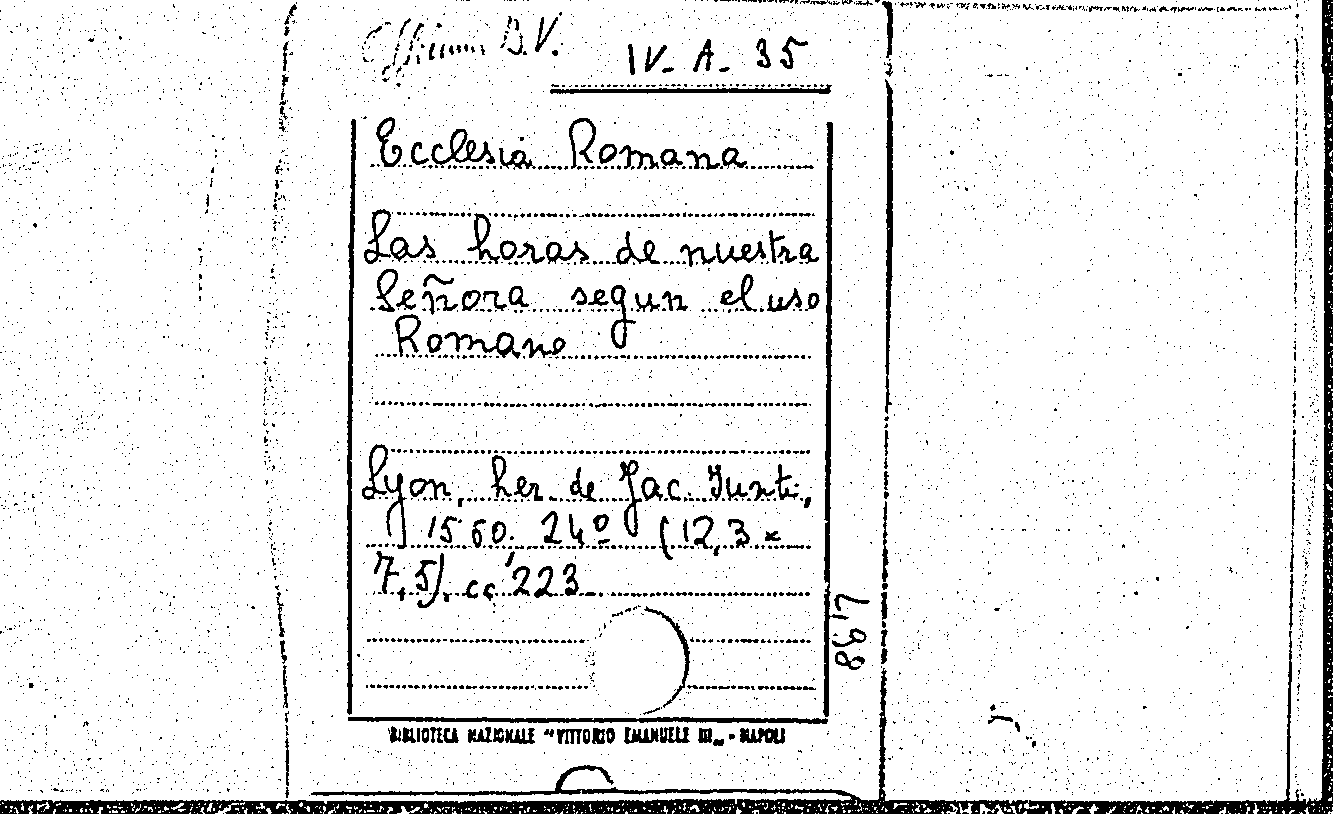 Officium B.V.
IV. A. 35
Ecclesia Romana
Las horas de nuestra
Señora segun el uso
Romano
Lyon, her. de Jac. Junti,
1560. 24º (12,3 ×
7,5). cc 223.
BIBLIOTECA NAZIONALE "VITTORIO EMANUELE III„ - NAPOLI